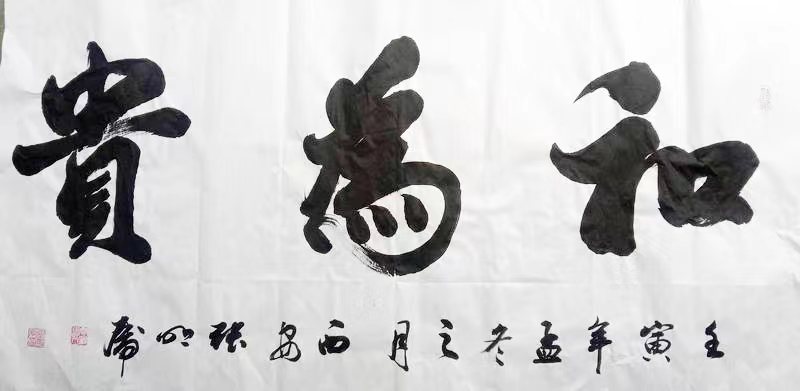 和為貴
壬寅年孟冬之月西安張明虎